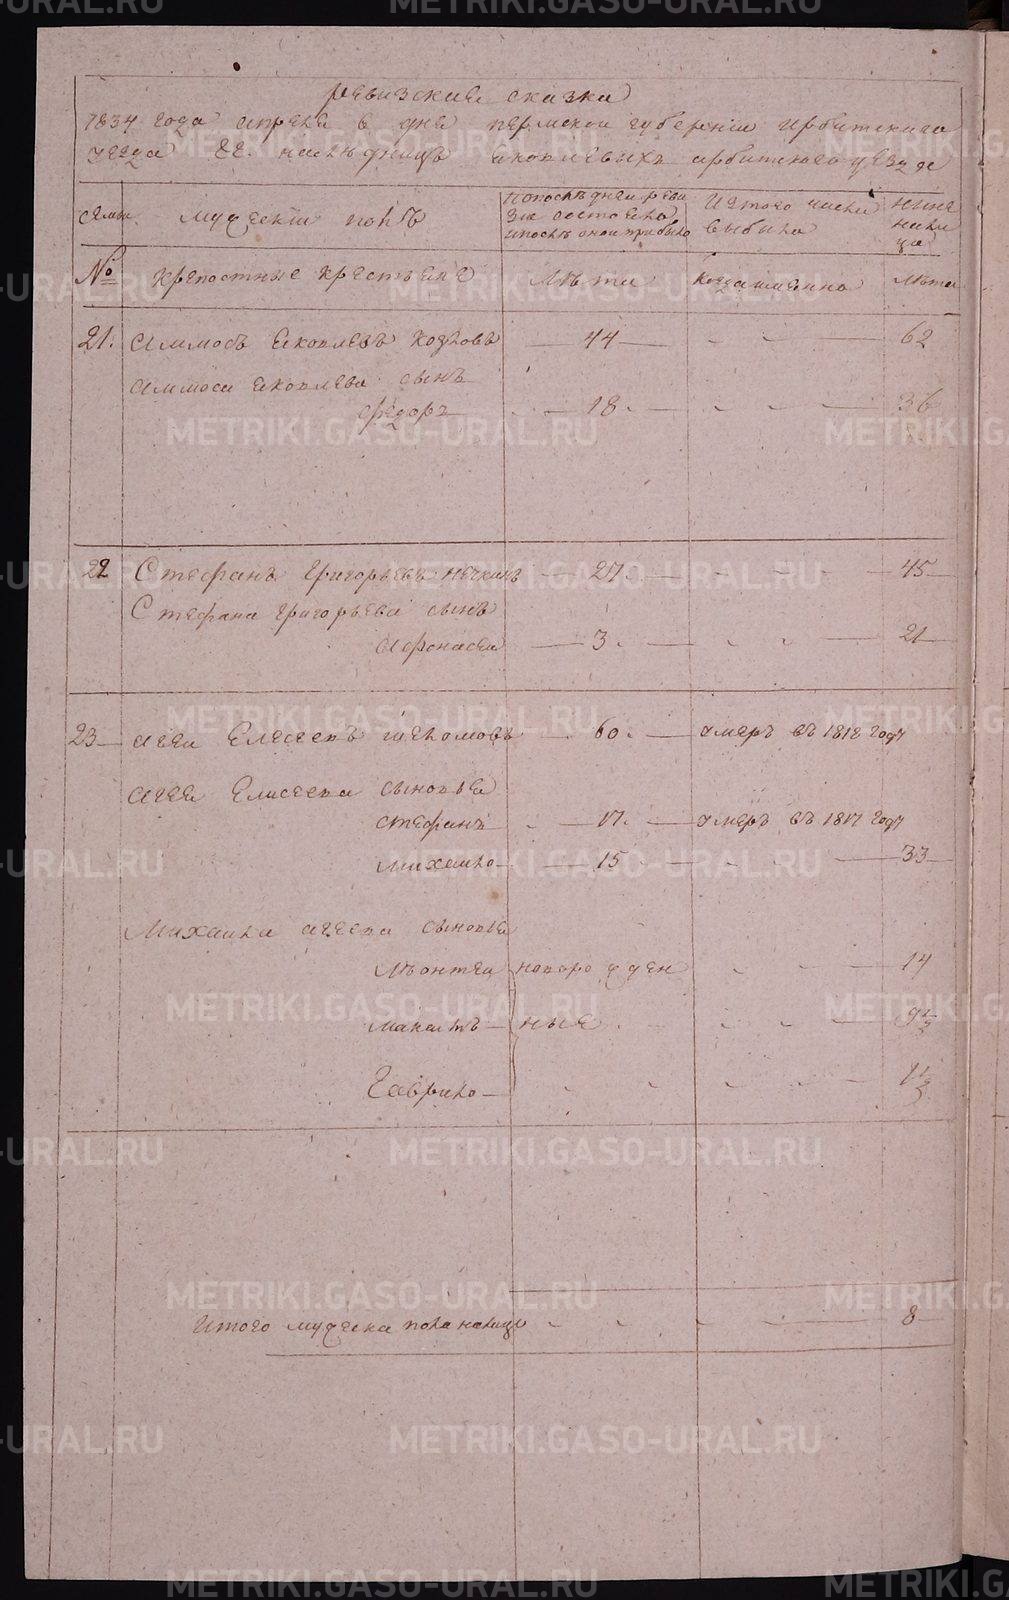 METRIKI.GASO-URAL.RU
ревизская сказка
1834 года апреля 6 дня пермской губернии ирбитскаго
уезда наследницъ яковлевыхъ ирбитскаго
семьи мужескій полъ
По последней реви
зіи состояло
и после оной прибыло
Из того числа
выбыло
Ныне
на ли
цо
№ крепостные крестьяне
Лѣта
Когда именно
Лѣта
21. Аммосъ Яковлевъ Козловъ 44 62
Аммоса Яковлева сынъ
Федоръ 18. 36
22 Стефанъ Григорьевъ 27. 45
Стефана Григорьева сынъ
Афонасей 3. 21
23 Агей Елесеевъ 60. умеръ въ 1812 году
Агея Елисеева сыновья
Стефанъ 17. умеръ въ 1817 году
Михайло 15 33
Михаила Агеева сыновья
Лѣонтей новорожден 14
ные 9 1/3
Гаврило 1 1/3
Итого мужеска пола налицо 8